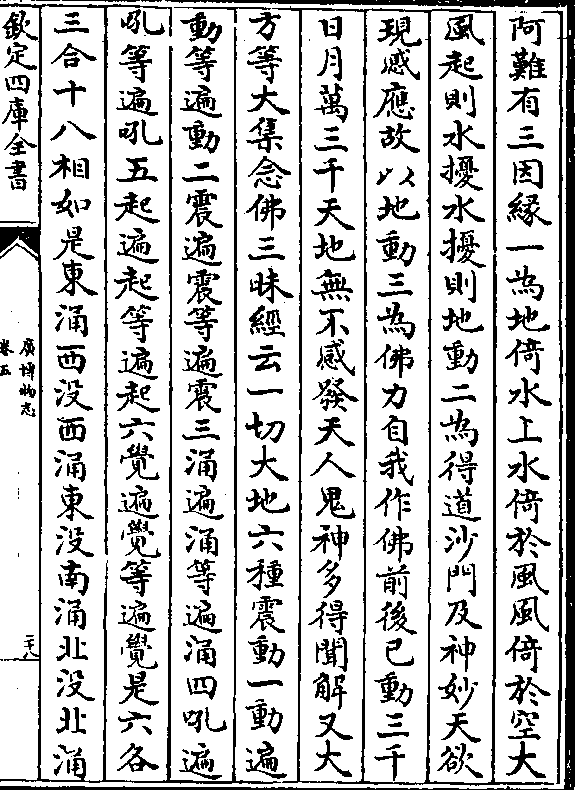 阿難有三因緣一為地倚水上水倚於風風倚於空大
風起則水擾水擾則地動二為得道沙門及神妙天欲
現感應故以地動三為佛力自我作佛前後已動三千
日月萬三千天地無不感發天人鬼神多得聞解又大
方等大集念佛三昧經云一切大地六種震動一動遍
動等遍動二震遍震等遍震三涌遍涌等遍涌四吼遍
吼等遍吼五起遍起等遍起六覺遍覺等遍覺是六各
三合十八相如是東涌西没西涌東没南涌北没北涌
欽定四庫全書
廣博物志
卷五
二十八